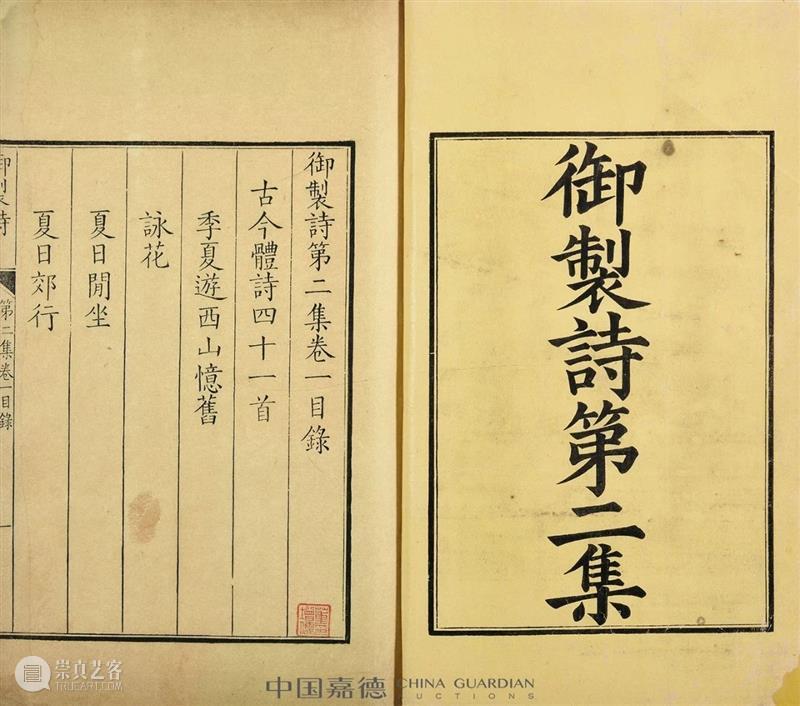 御製詩第二集
御製詩第二集卷一目錄
古今體詩四十一首
季夏遊西山憶舊
詠花
夏日閒坐
夏日郊行
御製詩
第二集卷一目錄
一
崇真艺客
TRUEART.COM
中国嘉德
CHINA GUARDIAN
AUCTIONS